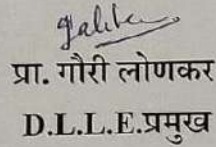 प्रा. गौरी लोणकर
D.L.L.E.प्रमुख